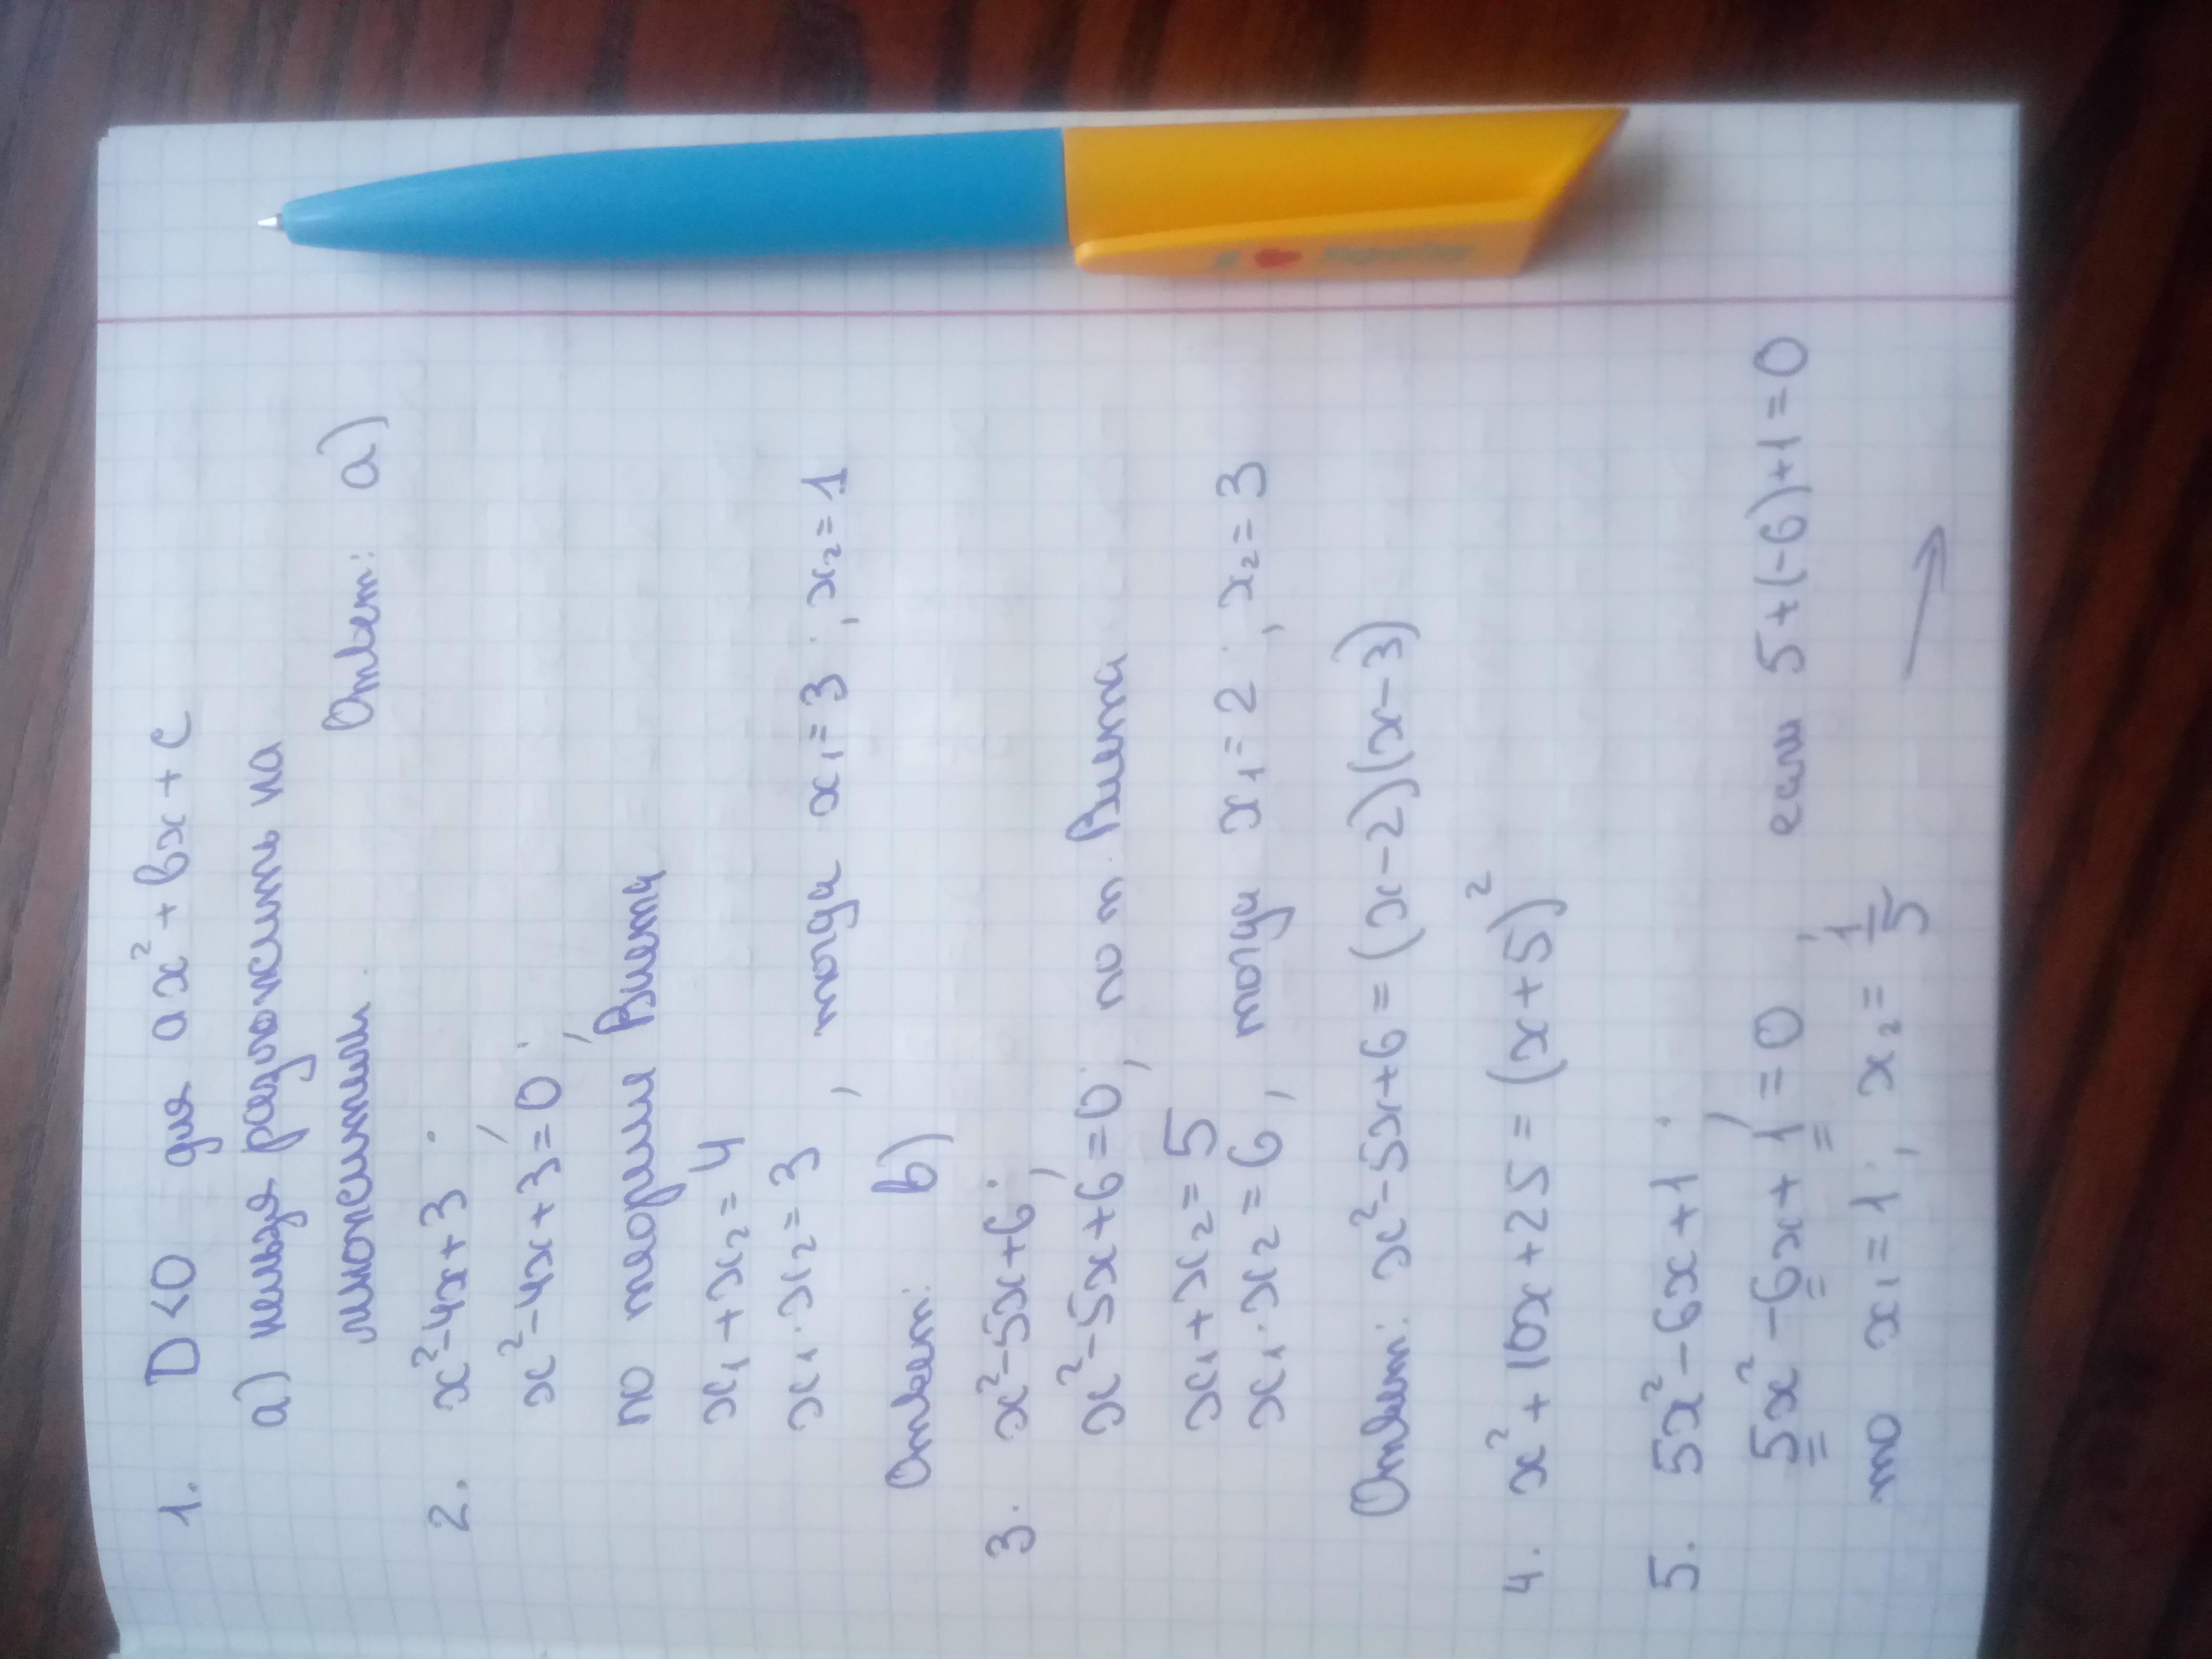 1. D<0 для ax²+bx+c
а) нельзя разложить на
множители.
Ответ: а)
2. x²-4x+3;
x²-4x+3=0;
по теореме Виета
x₁+x₂=4
x₁·x₂=3, тогда x₁=3; x₂=1
Ответ: в)
3. x²-5x+6;
x²-5x+6=0; по т. Виета
x₁+x₂=5
x₁·x₂=6, тогда x₁=2; x₂=3
Ответ: x²-5x+6=(x-2)(x-3)
4. x²+10x+25=(x+5)²
5. 5x²-6x+1;
5x²-6x+1=0, если 5+(-6)+1=0
то x₁=1; x₂=1/5